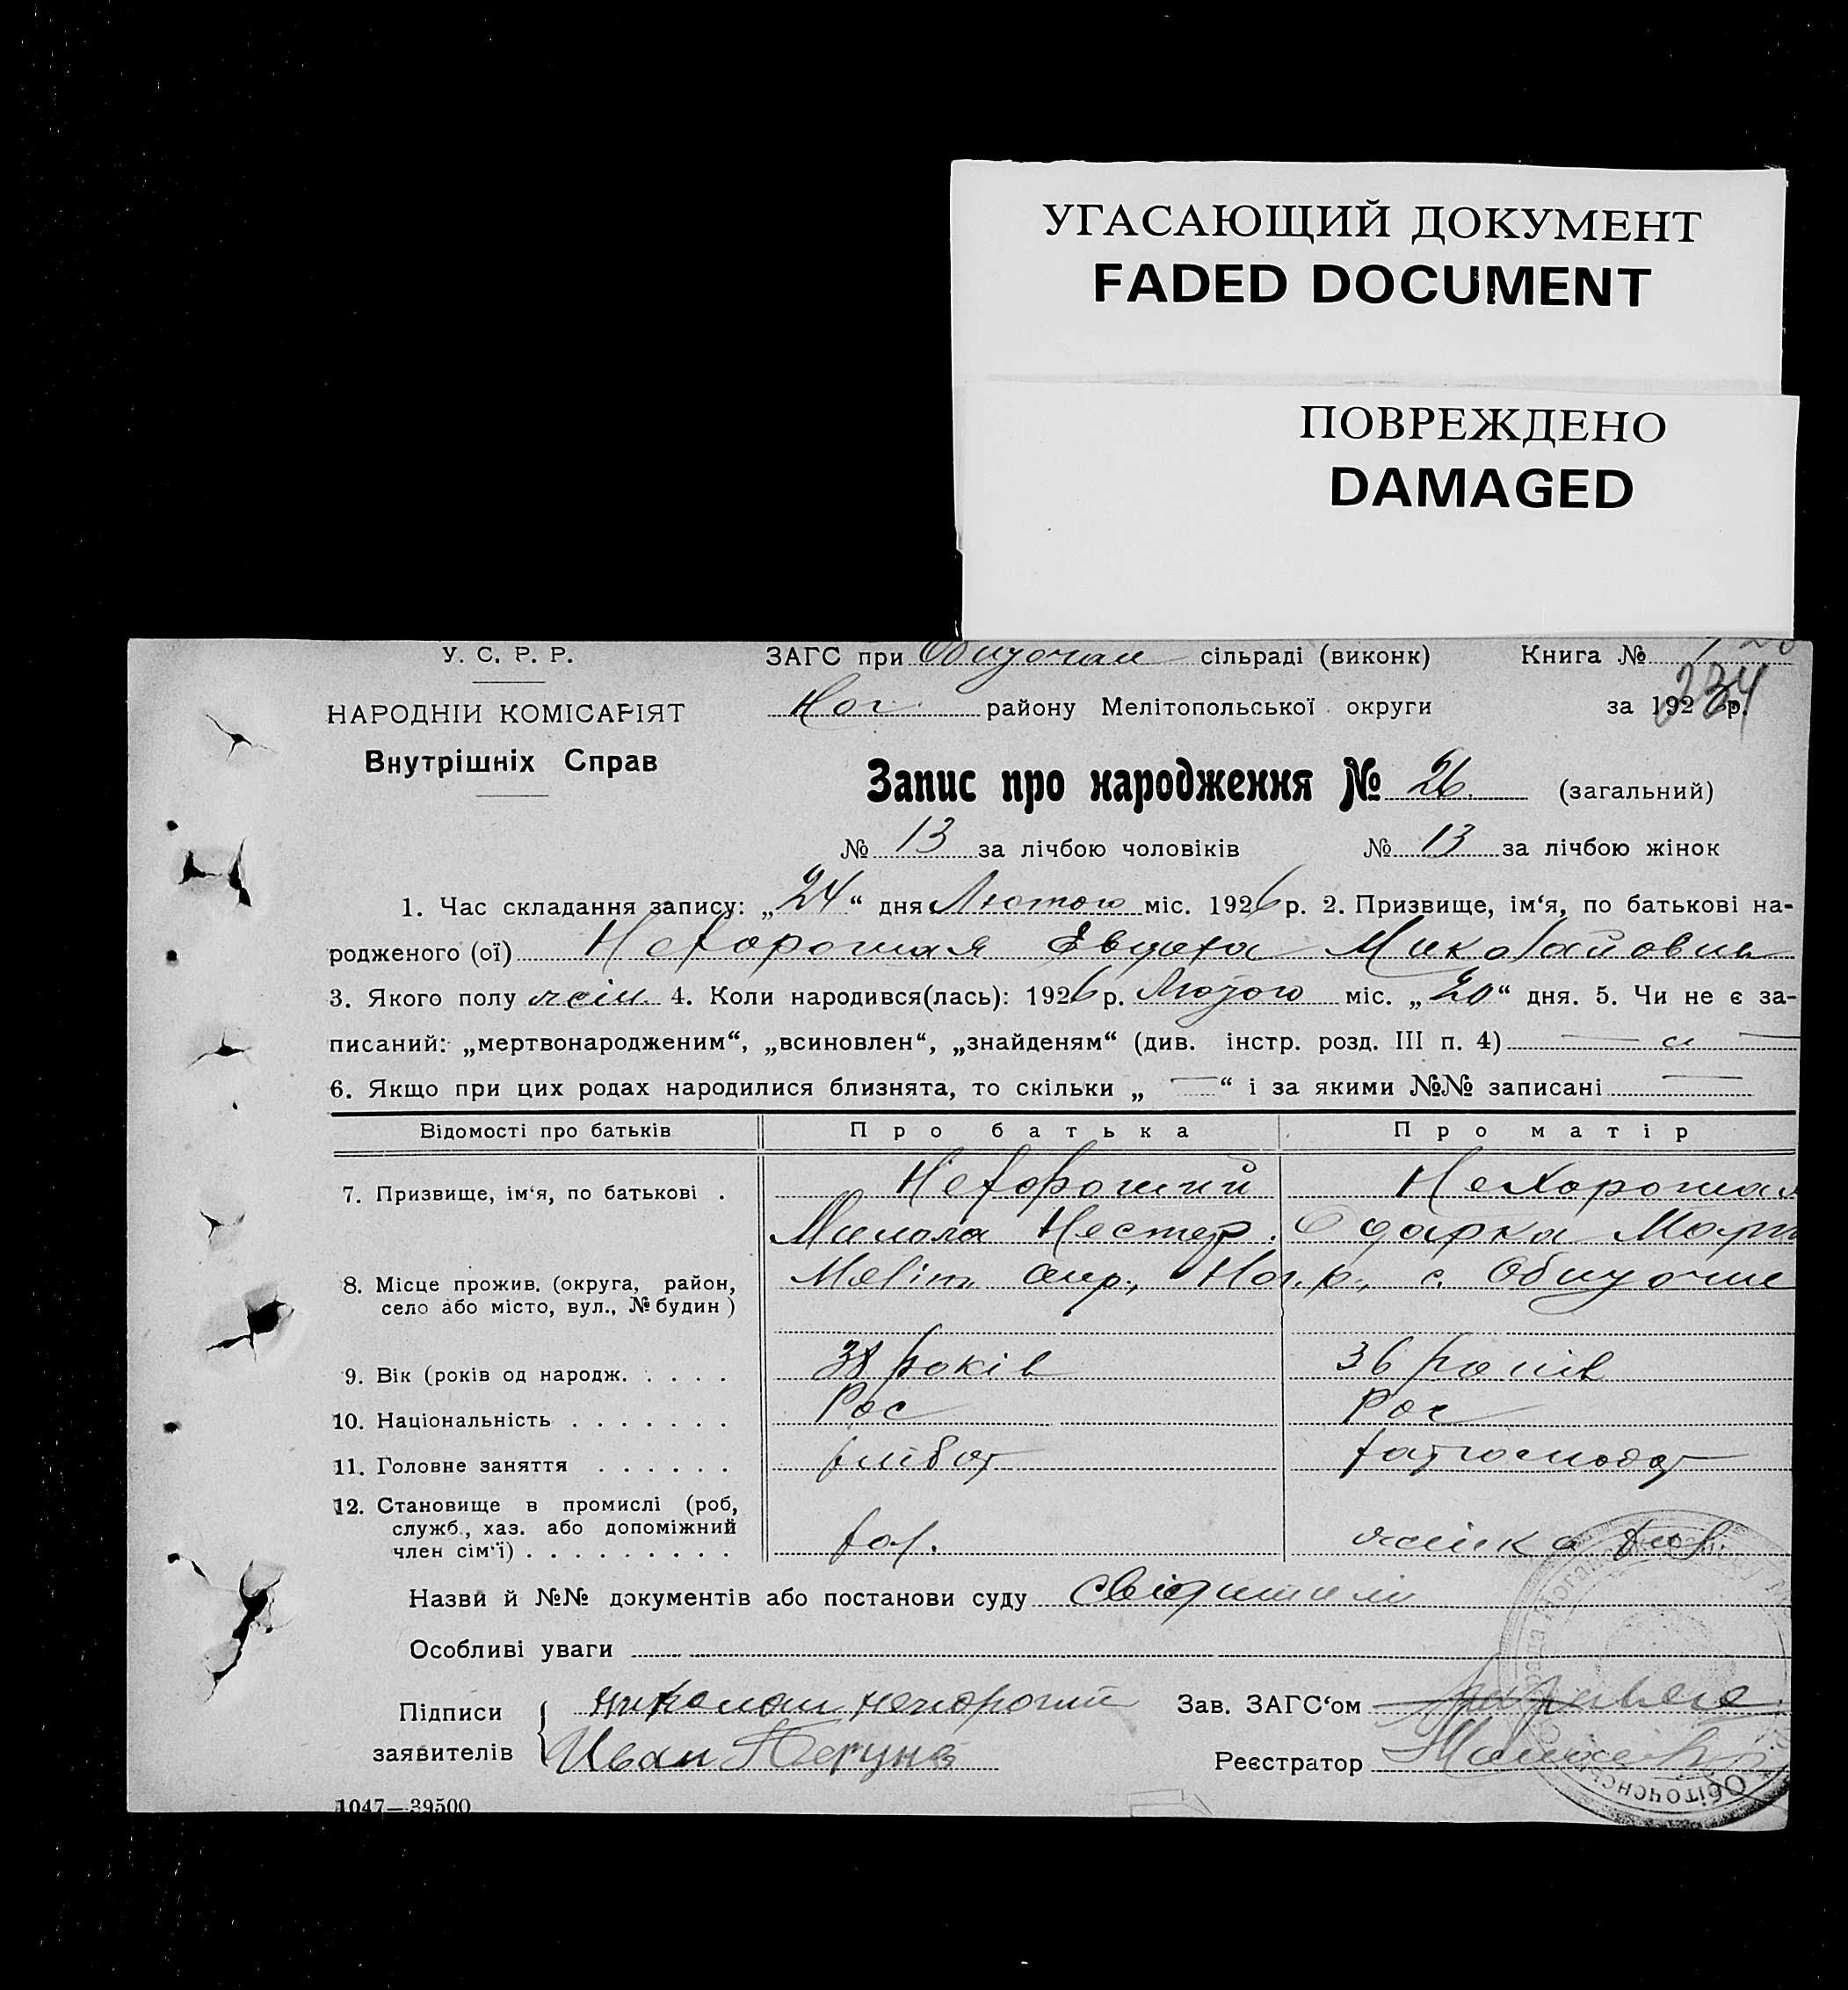 УГАСАЮЩИЙ ДОКУМЕНТ
FADED DOCUMENT
ПОВРЕЖДЕНО
DAMAGED
У. С. Р. Р.
ЗАГС при сільраді (виконк) Книга №
НАРОДНІИ КОМІСАРІЯТ
Ног. району Мелітопольської округи за 192 р.
234
Внутрішніх Справ
Запис про народження № 26. (загальний)
№ 13 за лічбою чоловіків № 13 за лічбою жінок
1. Час складання запису: „24“ дня Лютого міс. 1926 р. 2. Призвище, ім'я, по батькові на-
родженого (ої) Нехорошая Евдоха Миколайовна
3. Якого полу жін. 4. Коли народився(лась): 1926 р. Лютого міс. „20“ дня. 5. Чи не є за-
писаний: „мертвонародженим“, „всиновлен“, „знайденям“ (див. інстр. розд. III п. 4)
6. Якщо при цих родах народилися близнята, то скільки „—“ і за якими №№ записані —
Відомості про батьків Про батька Про матір
7. Призвище, ім'я, по батькові . Нехороший Нехорошая
Микола Нестер. Одарка Март
8. Місце прожив. (округа, район, село або місто, вул., № будин) Меліт. окр., Ног. р., с. Обиточне
9. Вік (років од народж. . . . . 38 років 36 років
10. Національність . . . . . . . Рос Рос
11. Головне заняття . . . . . . хлібор хатгосподар
12. Становище в промислі (роб,
служб., хаз. або допоміжний
член сім'ї) . . . . . . . . . хоз. жінка хоз.
Назви й №№ документів або постанови суду
Особливі уваги
Підписи Николай Нехороший Зав. ЗАГС'ом
заявителів Иван Реєстратор
1047—39500